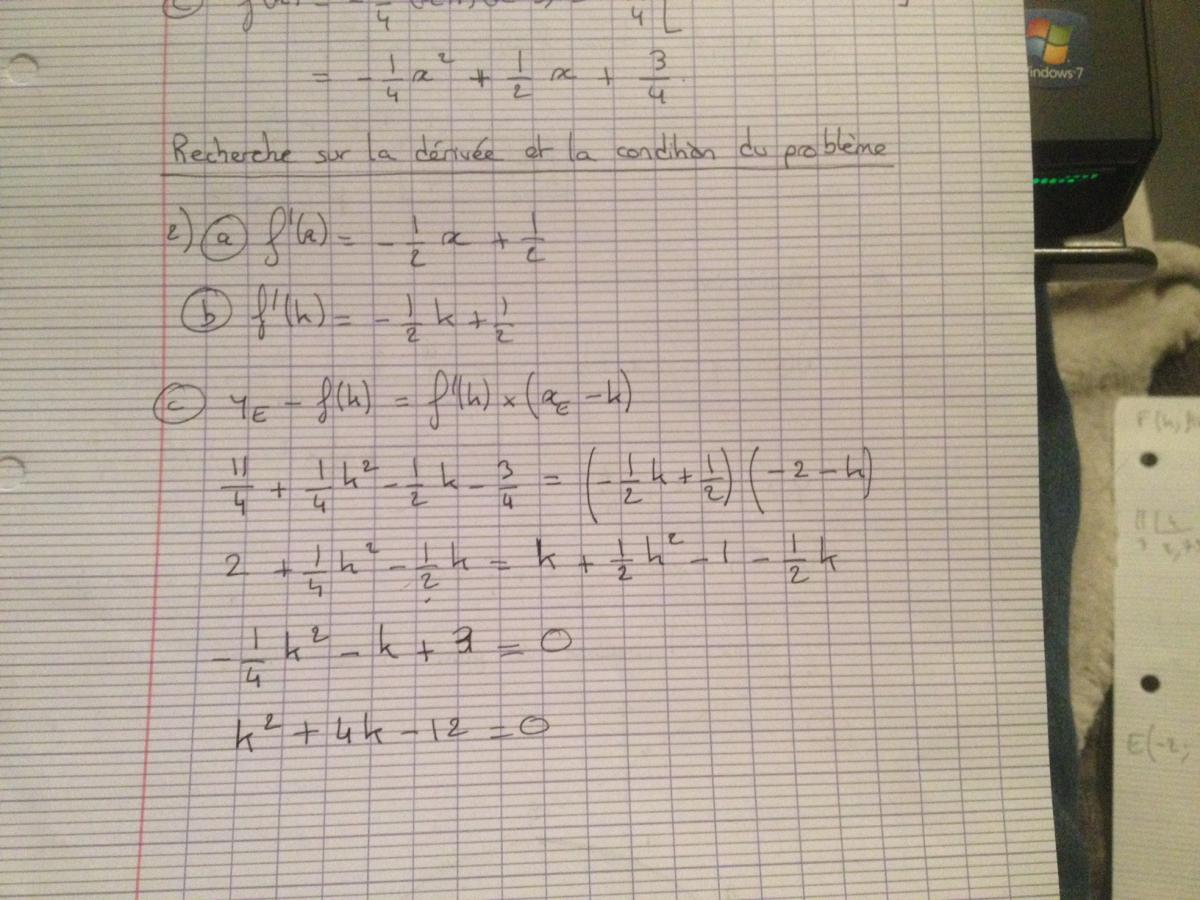 = - 1/4 x² + 1/2 x + 3/4.
Recherche sur la dérivée et la condition du problème
2) (a) f'(x) = - 1/2 x + 1/2
(b) f'(k) = - 1/2 k + 1/2
(c) y_E - f(k) = f'(k) × (x_E - k)
11/4 + 1/4 k² - 1/2 k - 3/4 = (- 1/2 k + 1/2) (-2 - k)
2 + 1/4 k² - 1/2 k = k + 1/2 k² - 1 - 1/2 k
- 1/4 k² - k + 3 = 0
k² + 4k - 12 = 0
indows 7
E(-2;